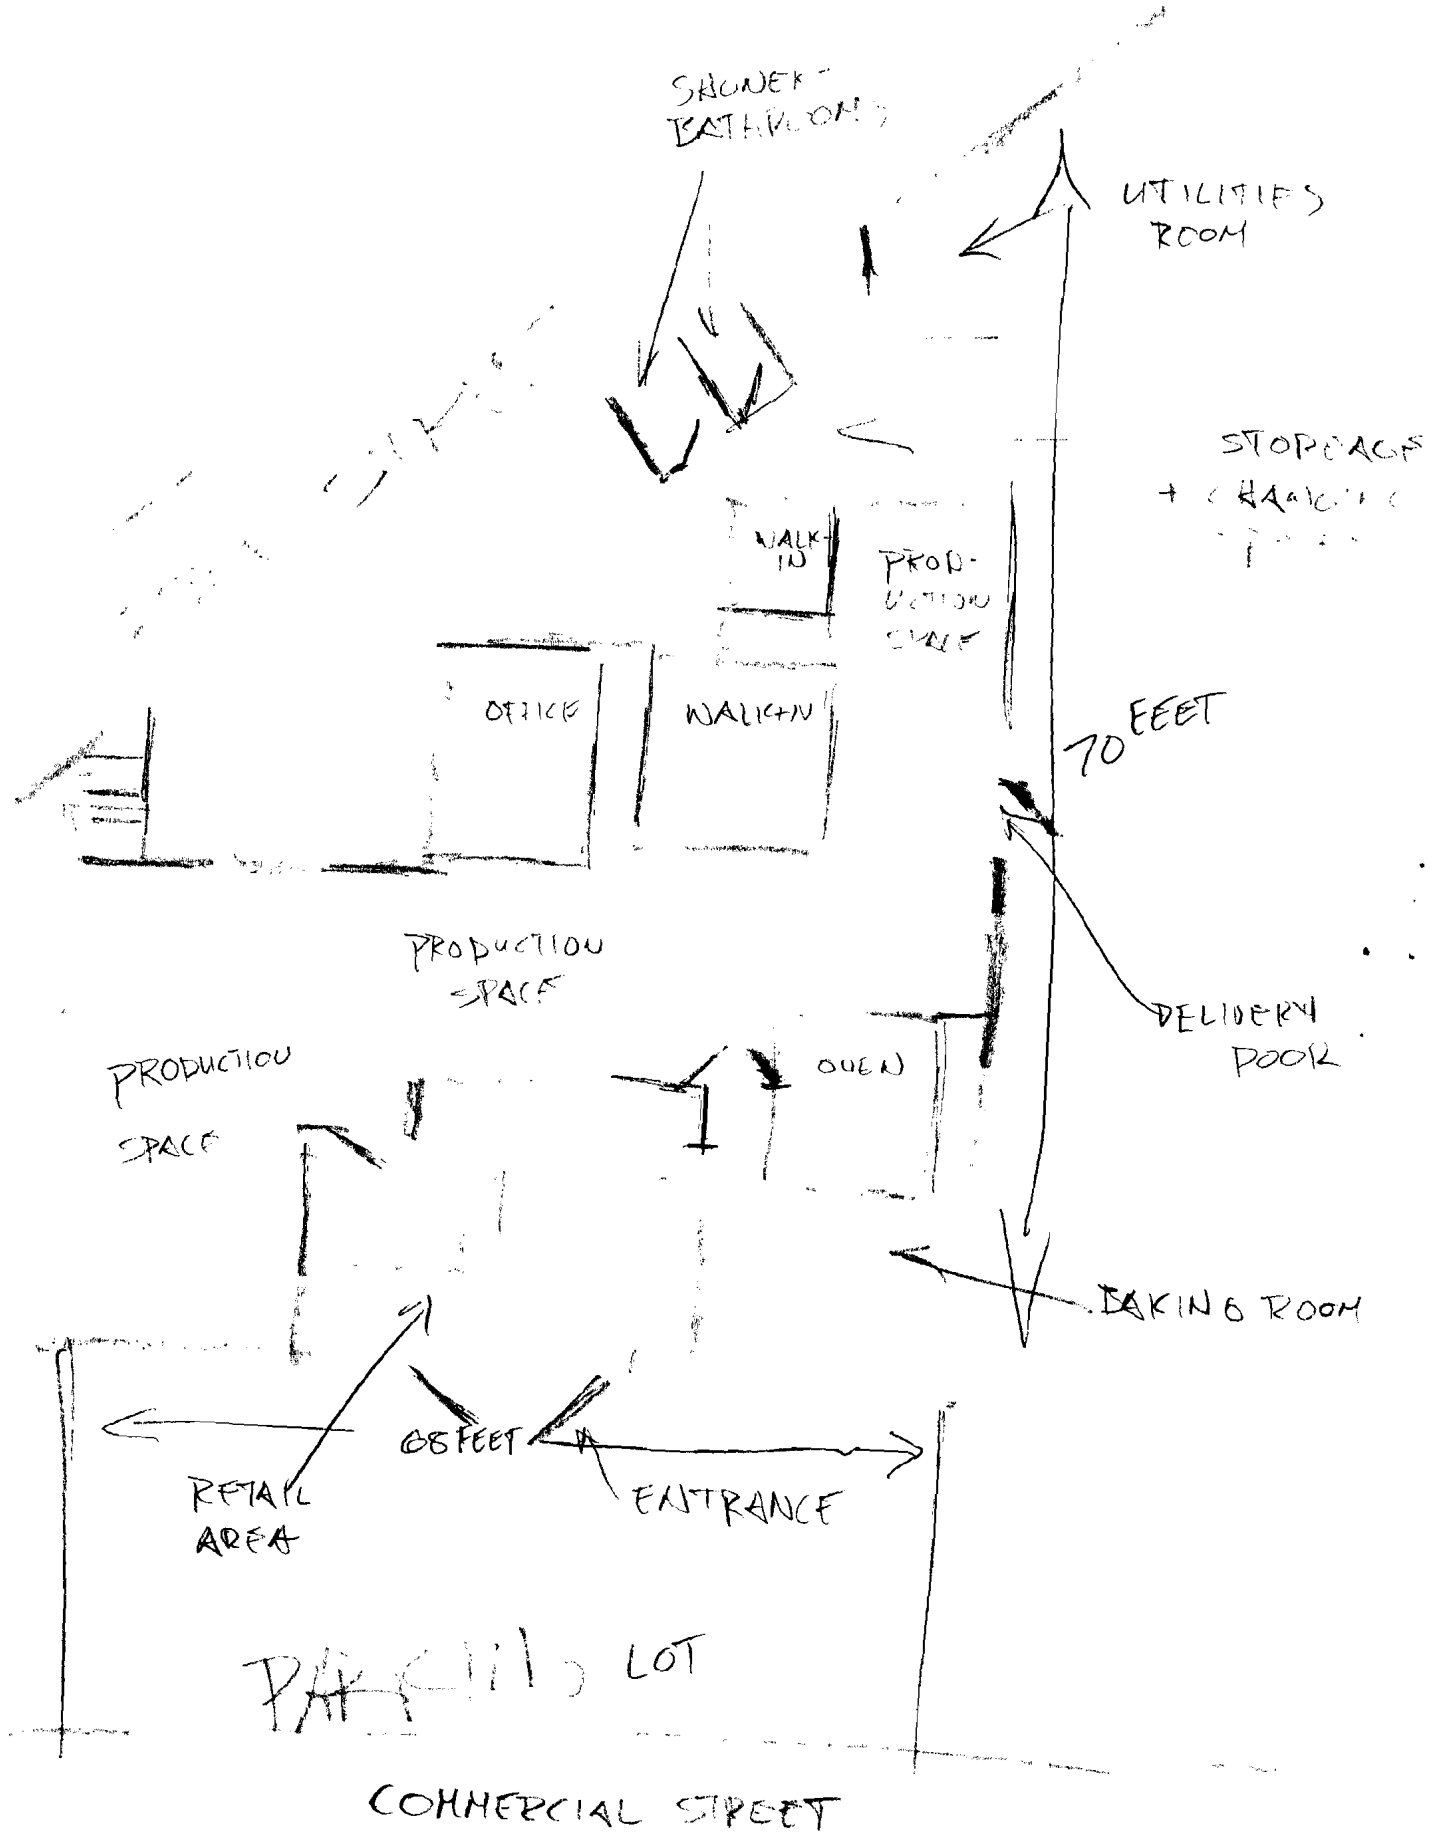 SHOWER-
BATHROOMS
UTILITIES
ROOM
STORAGE
+
WALK-
IN
PROD-
UCTION
SPACE
OFFICE
WALK-IN
70 FEET
PRODUCTION
SPACE
DELIVERY
DOOR
PRODUCTION
SPACE
OVEN
BAKING ROOM
68 FEET
RETAIL
AREA
ENTRANCE
PARKING LOT
COMMERCIAL STREET